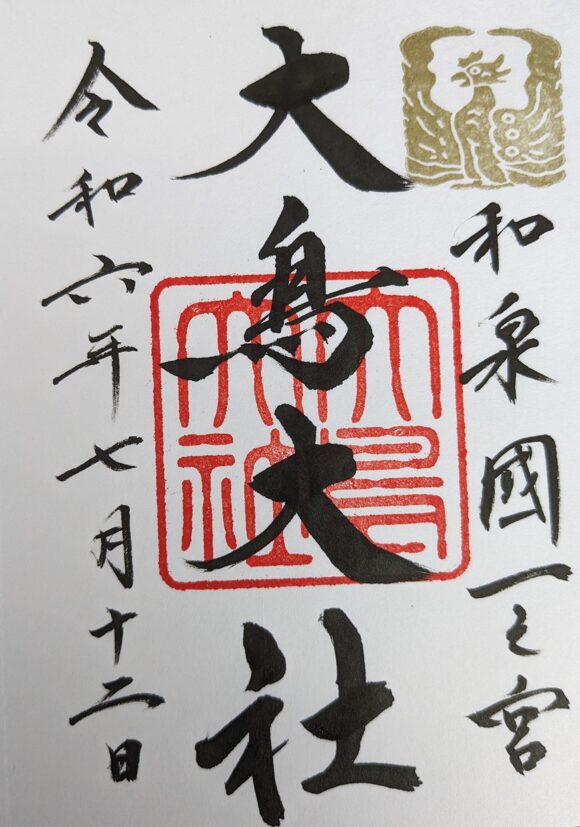 和泉國一之宮
大鳥大社
大鳥大社
令和六年七月十二日